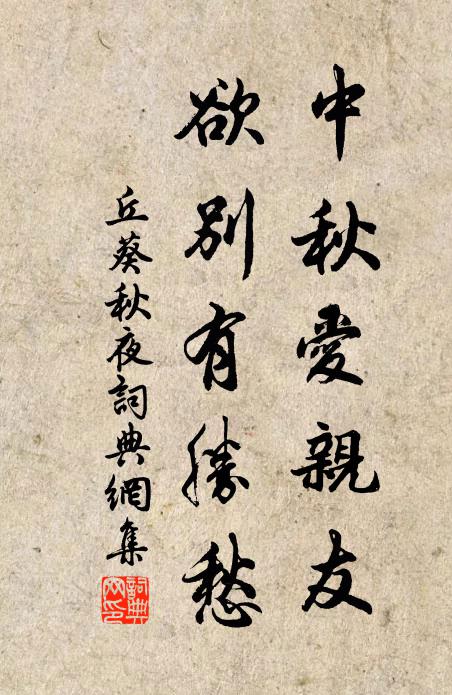 中秋愛親友
欲別有勝愁
丘葵秋夜詞典網集
詞典
網印